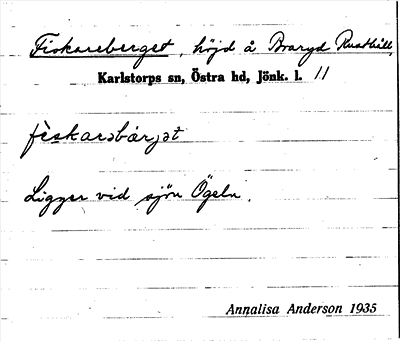 Fiskareberget, höjd å Braryd Rusthåll,
Karlstorps sn, Östra hd, Jönk. l. 11
fèskarəbàrjət
Ligger vid sjön Ögeln.
Annalisa Anderson 1935